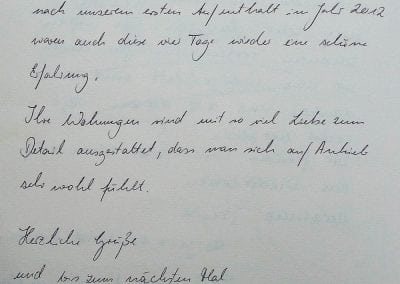 nach unserem ersten Aufenthalt im Jahr 2012
waren auch diese vier Tage wieder eine schöne
Erfahrung.
Ihre Wohnungen sind mit so viel Liebe zum
Detail ausgestattet, dass man sich auf Anhieb
sehr wohl fühlt.
Herzliche Grüße
und bis zum nächsten Mal